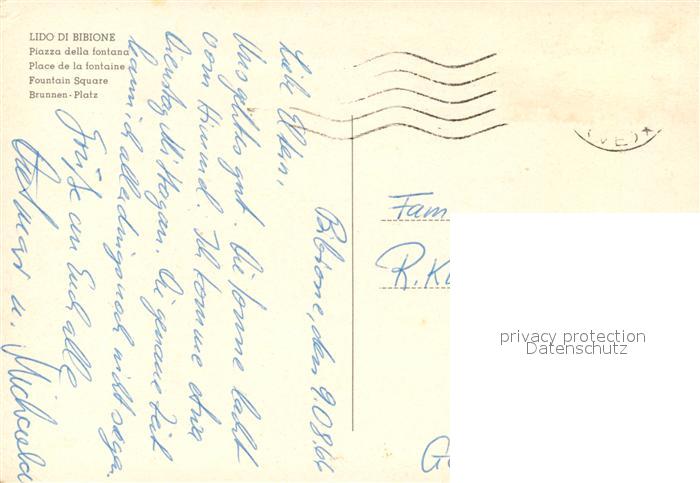 LIDO DI BIBIONE
Piazza della fontana
Place de la fontaine
Fountain Square
Brunnen-Platz
Bibione, den 9.08.66
Liebe Eltern,
Uns gehts gut. Die Sonne lacht
vom Himmel. Ich komme etwa
Dienstag Mittag an. Die genaue Zeit
kann ich allerdings noch nicht sagen.
Grüße an Euch alle
u. Michaela
(VE)
Fam
R. K
G
privacy protection
Datenschutz